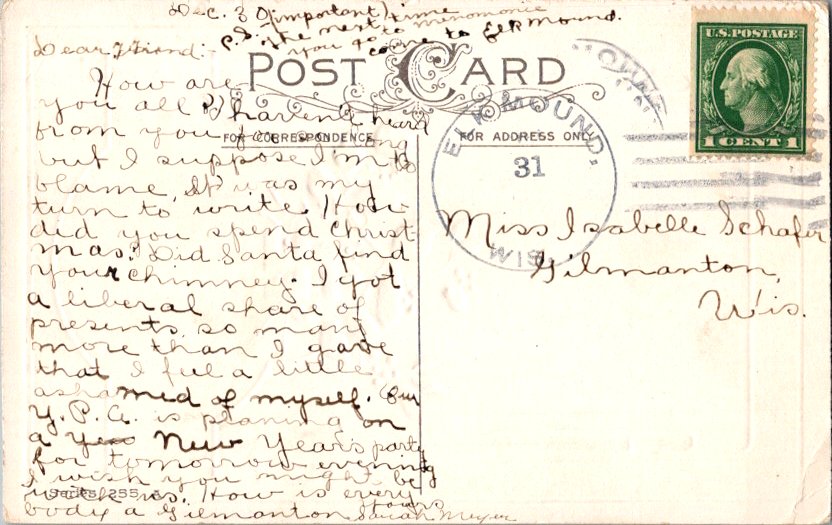 Dec. 30
(important)
P.S. The next time
you go to Menomonie
come to Elk Mound.
Dear Friend:-
POST CARD
How are
you all? I haven't heard
from you for so long
but I suppose I'm to
blame. It was my
turn to write. How
did you spend Christ
mas? Did Santa find
your chimney. I got
a liberal share of
presents, so many
more than I gave
that I feel a little
ashamed of myself. Our
Y.P.A. is planing on
a New Year's party
for tomorrow evening
I wish you might be
with us. How is every
body a Gilmanton
Yours
Sarah Meyer
FOR CORRESPONDENCE
FOR ADDRESS ONLY
Series 255
ELK MOUND,
31
WIS.
U.S. POSTAGE
1 CENT 1
Miss Isabelle Schafer
Gilmanton,
Wis.